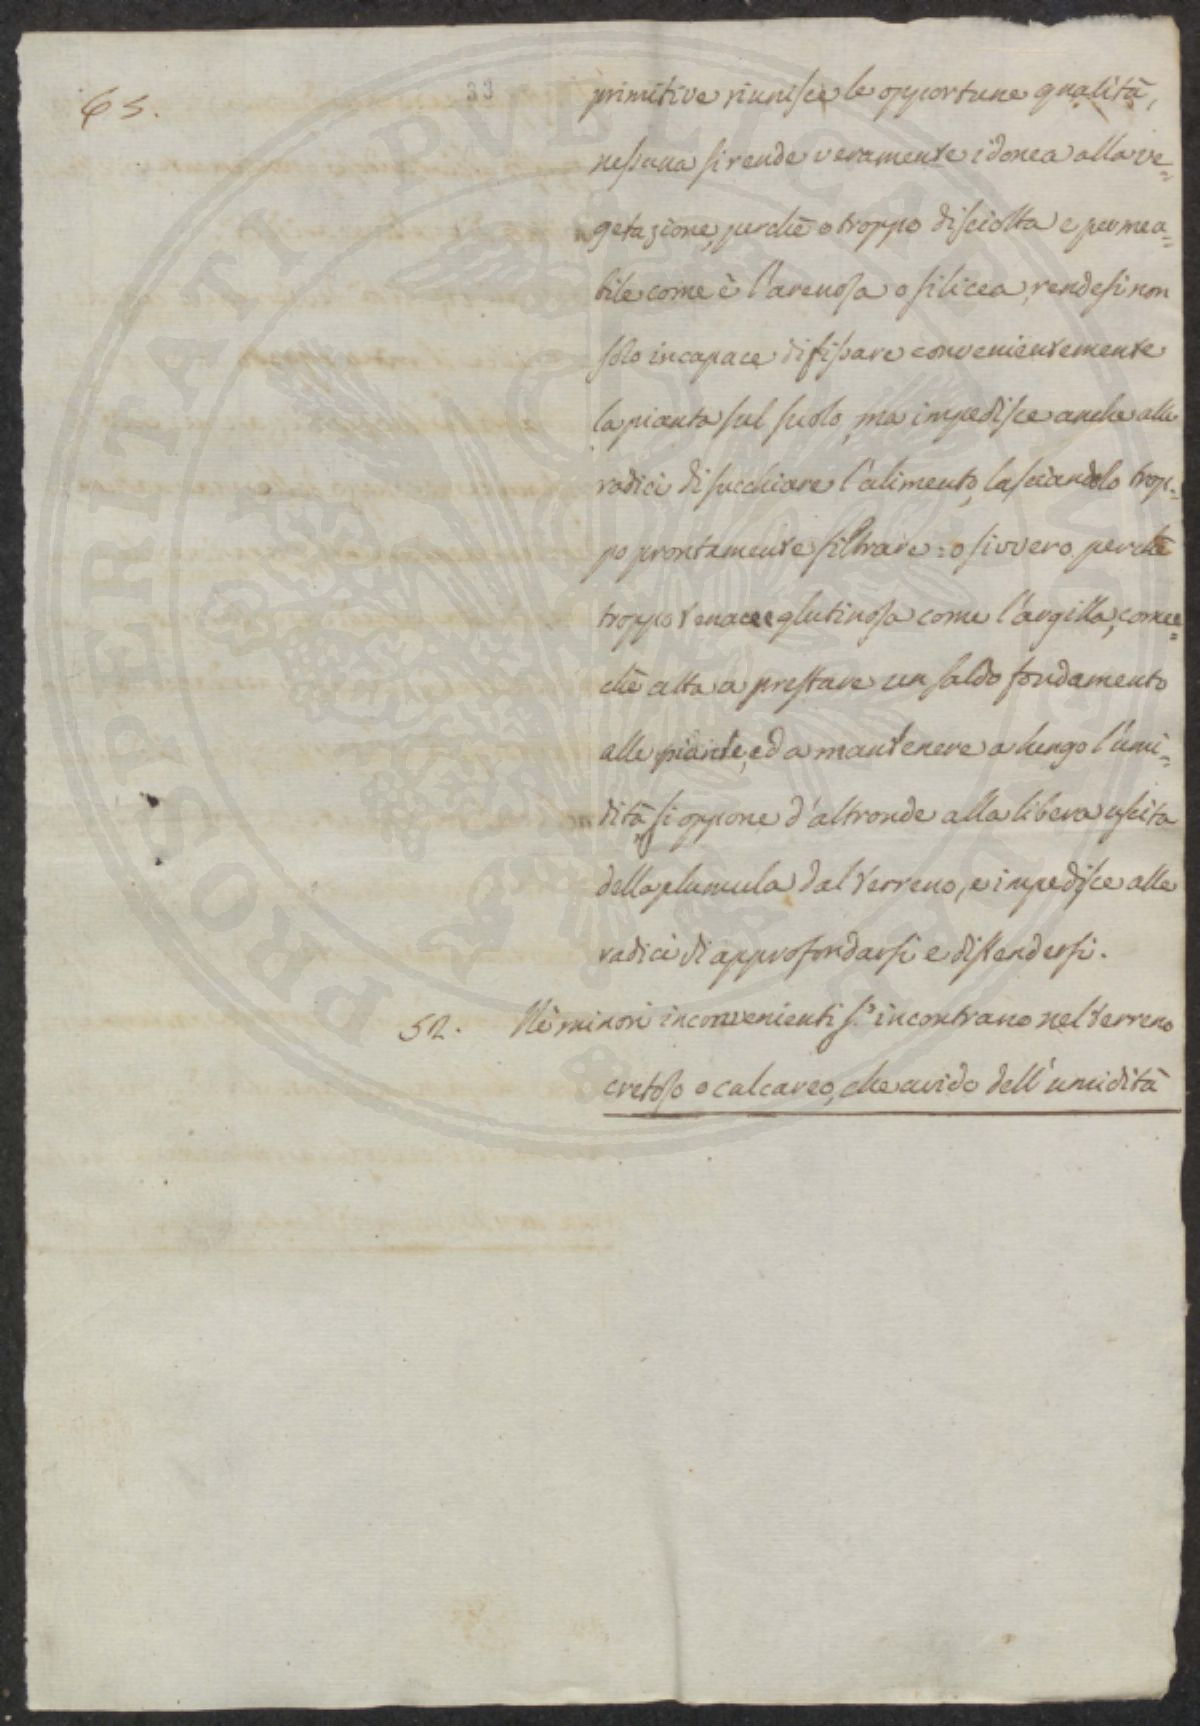 65.
33
primitive riunisce le opportune qualità,
nessuna si rende veramente idonea alla ve=
getazione, perchè o troppo disciolta e permea=
bile come è l'arenosa o silicea, rendesi non
solo incapace di fissare convenientemente
la pianta sul suolo, ma impedisce anche alle
radici di succhiare l'alimento, lasciandolo trop=
po prontamente filtrare: o sivvero perchè
troppo tenace e glutinosa come l'argilla, come=
chè atta a prestare un saldo fondamento
alle piante, ed a mantenere a lungo l'umi=
dità, si oppone d'altronde alla libera uscita
della plumula dal terreno, e impedisce alle
radici di approfondarsi e distendersi.
52. Nè minori inconvenienti s'incontrano nel terreno
cretoso o calcareo, che avido dell'umidità
PROSPERITATI PUBLICAE AUGENDAE